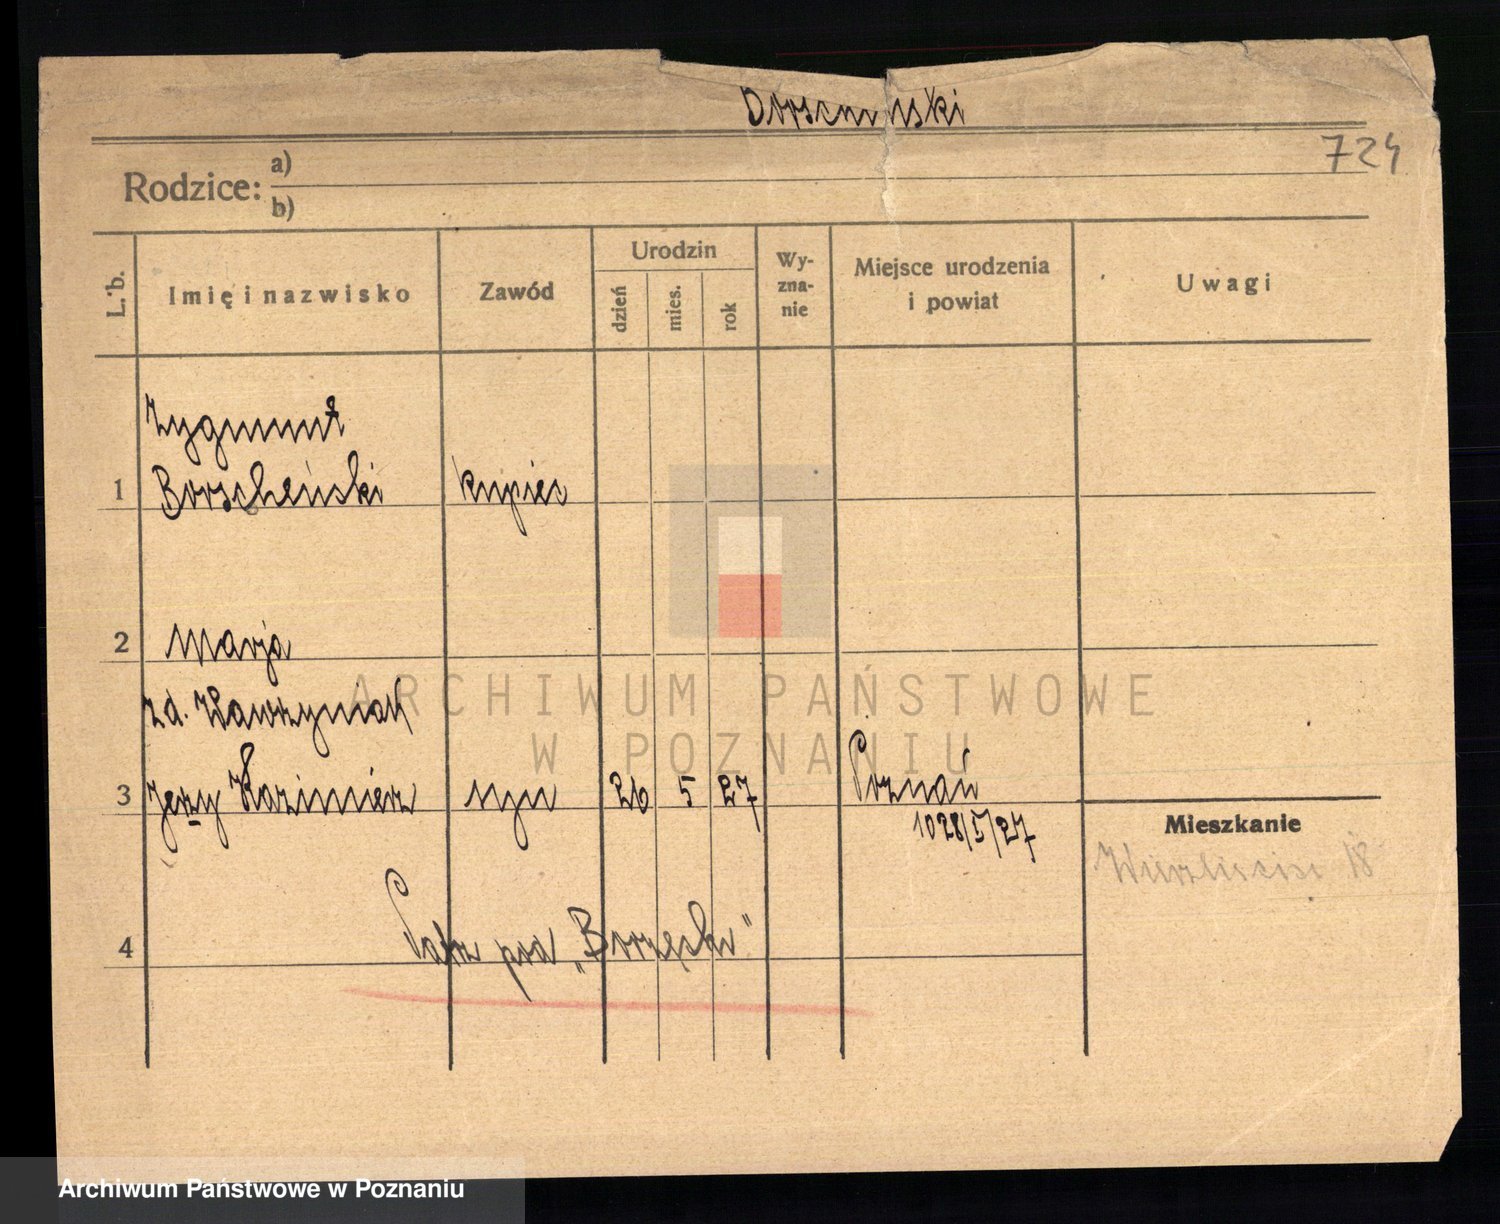 724
Rodzice: a)
b)
L. b.
Imię i nazwisko
Zawód
Urodzin
dzień
mies.
rok
Wy-
zna-
nie
Miejsce urodzenia
i powiat
Uwagi
Zygmunt
1 Borscheński kupiec
2 Marja
zd. Wawrzyniak
3 Jerzy Kazimierz syn 26 5 27 Poznań
1028/5/27
Mieszkanie
18
Patrz pod „Borzęcki"
4
ARCHIWUM PAŃSTWOWE
W POZNANIU
Archiwum Państwowe w Poznaniu